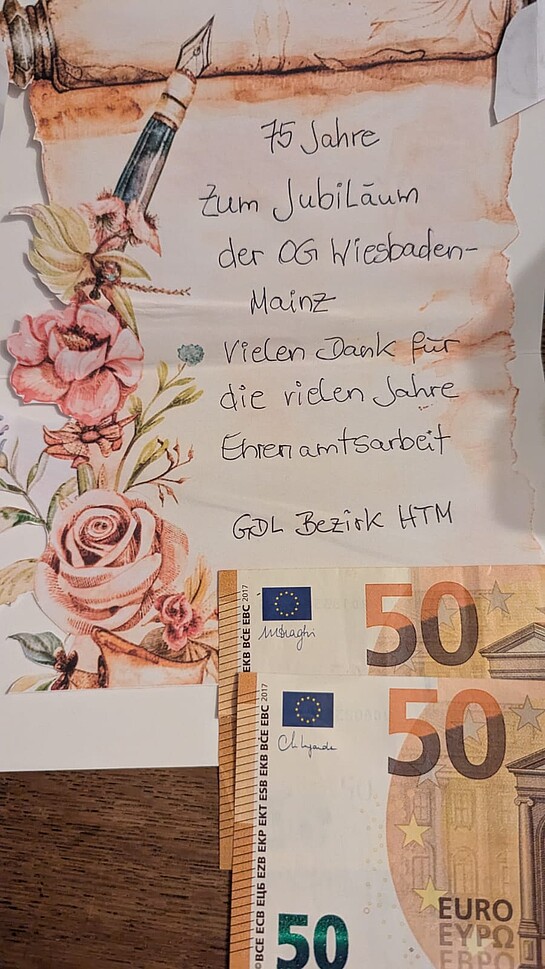 75 Jahre
Zum Jubiläum
der OG Wiesbaden-
Mainz
Vielen Dank für
die vielen Jahre
Ehrenamtsarbeit
GDL Bezirk HTM
EKB BCE EBC 2017
50
BCE ECB ЕЦБ EZB EKP EKT ESB EKB BĊE EBC 2017
50
50
EURO
ΕΥΡΩ
ЕВРО